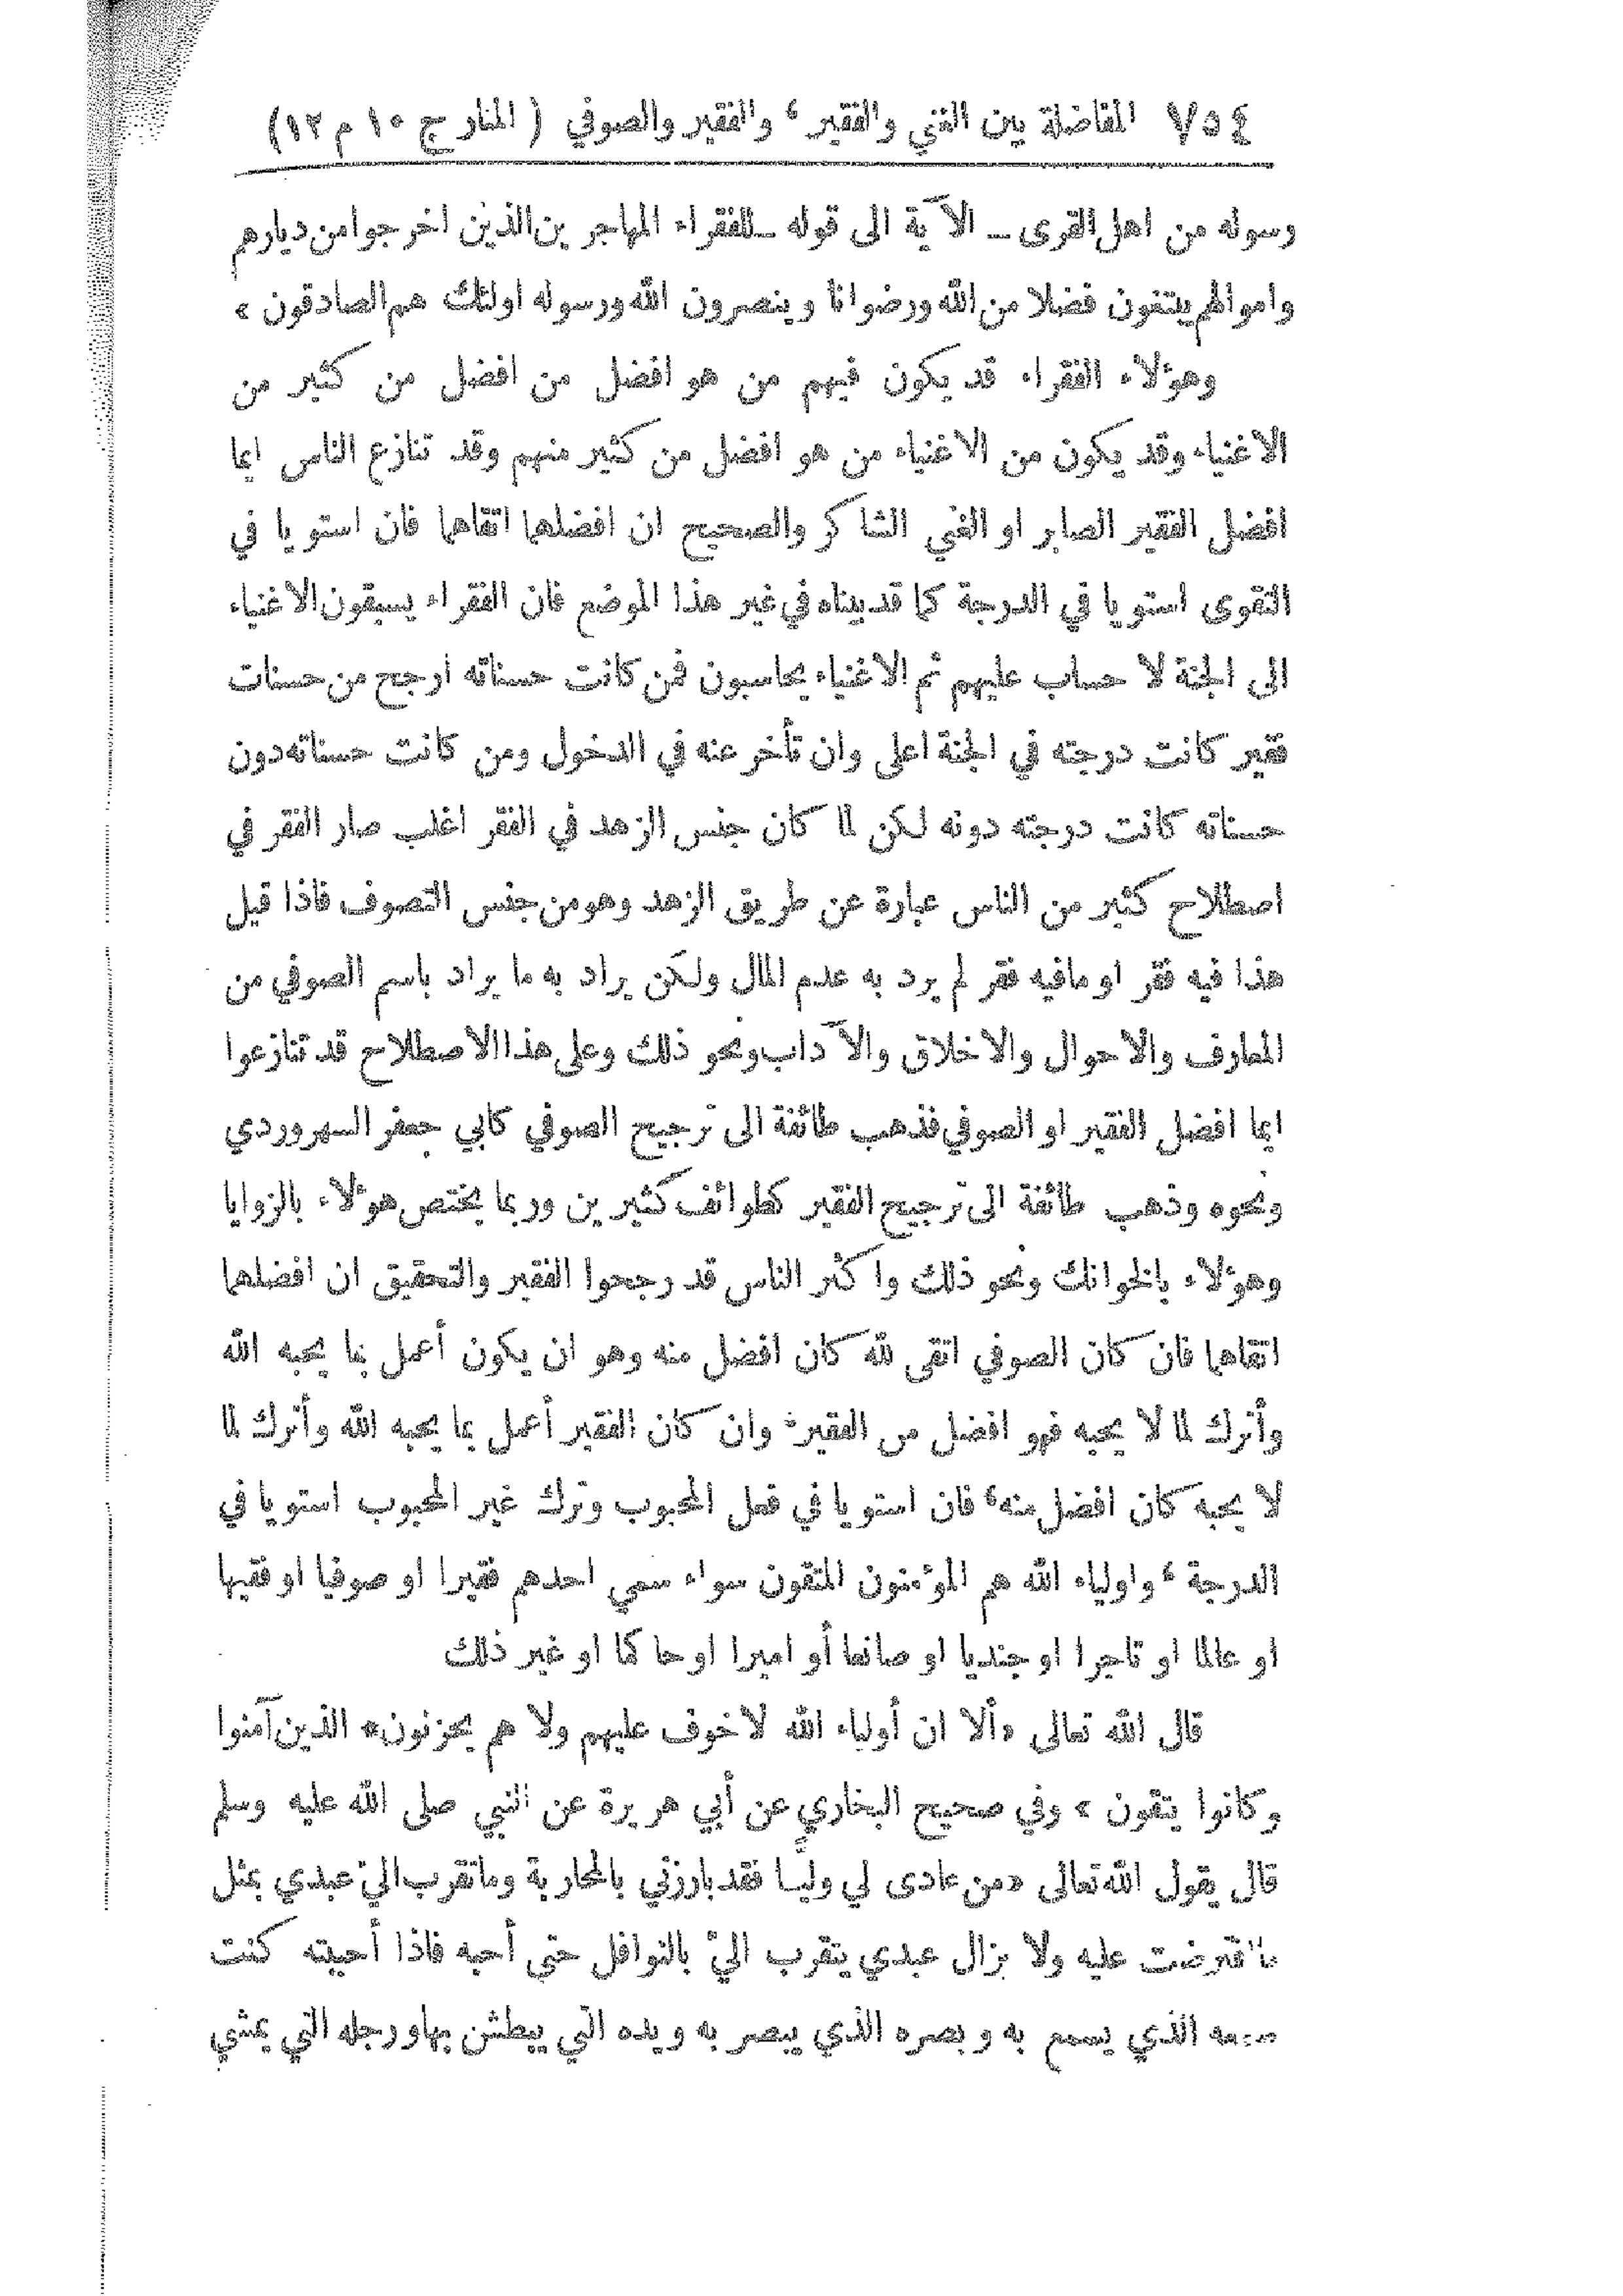 ٧٥٤ المفاضلة بين الغني والفقير، والفقير والصوفي (المنار ج ١٠ م ١٢)
رسوله من اهل القرى ـ الآية الى قوله ـ للفقراء المهاجرين الذين اخرجوا من ديارهم
واموالهم يبتغون فضلا من الله ورضوانا وينصرون الله ورسوله اولئك هم الصادقون »
وهؤلاء الفقراء قد يكون فيهم من هو افضل من افضل من كثير من
الاغنياء وقد يكون من الاغنياء من هو افضل من كثير منهم وقد تنازع الناس ايما
افضل الفقير الصابر او الغني الشاكر والصحيح ان افضلهما اتقاهما فان استويا في
التقوى استويا في الدرجة كما قد بيناه في غير هذا الموضع فان الفقراء يسبقون الاغنياء
الى الجنة لا حساب عليهم ثم الاغنياء يحاسبون فمن كانت حسناته ارجح من حسنات
فقير كانت درجته في الجنة اعلى وان تأخر عنه في الدخول ومن كانت حسناته دون
حسناته كانت درجته دونه لكن لما كان جنس الزهد في الفقر اغلب صار الفقر في
اصطلاح كثير من الناس عبارة عن طريق الزهد وهو من جنس التصوف فاذا قيل
هذا فيه فقر او مافيه فقر لم يرد به عدم المال ولكن يراد به ما يراد باسم الصوفي من
المعارف والاحوال والاخلاق والآداب ونحو ذلك وعلى هذا الاصطلاح قد تنازعوا
ايما افضل الفقير او الصوفي فذهب طائفة الى ترجيح الصوفي كابي جعفر السهروردي
ونحوه وذهب طائفة الى ترجيح الفقير كطوائف كثيرين وربما يختص هؤلاء بالزوايا
وهؤلاء بالخوانك ونحو ذلك واكثر الناس قد رجحوا الفقير والتحقيق ان افضلهما
اتقاهما فان كان الصوفي اتقى لله كان افضل منه وهو ان يكون أعمل بما يحبه الله
وأترك لما لا يحبه فهو افضل من الفقير، وان كان الفقير أعمل بما يحبه الله وأترك لما
لا يحبه كان افضل منه، فان استويا في فعل المحبوب وترك غير المحبوب استويا في
الدرجة، واولياء الله هم المؤمنون المتقون سواء سمي احدهم فقيرا او صوفيا او فقيها
او عالما او تاجرا او جنديا او صانعا أو اميرا او حاكما او غير ذلك
قال الله تعالى «ألا ان أولياء الله لا خوف عليهم ولا هم يحزنون* الذين آمنوا
وكانوا يتقون » وفي صحيح البخاري عن أبي هريرة عن النبي صلى الله عليه وسلم
قال يقول الله تعالى «من عادى لي وليًّا فقد بارزني بالمحاربة وما تقرب اليّ عبدي بمثل
ما افترضت عليه ولا يزال عبدي يتقرب اليّ بالنوافل حتى أحبه فاذا أحببته كنت
سمعه الذي يسمع به وبصره الذي يبصر به ويده التي يبطش بها ورجله التي يمشي